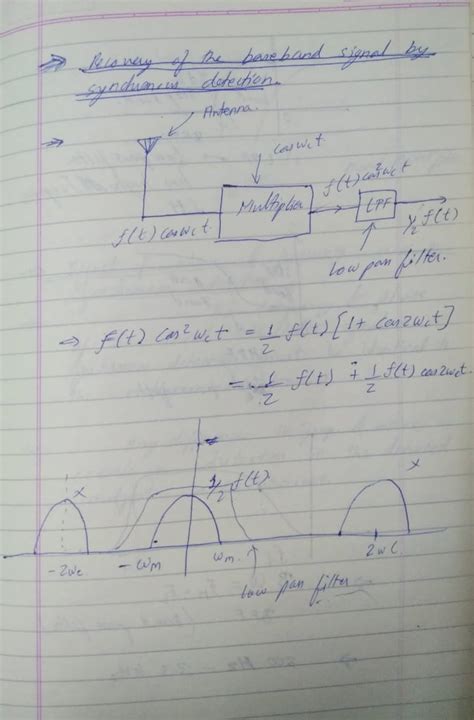 ⇒ Recovery of the baseband signal by
synchronous detection.
⇒ Antenna.
cosωct
f(t)cosωct
Multiplier
f(t)cos²ωct
LPF
½f(t)
low pass filter.
⇒ f(t) cos²ωct = 1/2 f(t) [1 + cos2ωct]
= 1/2 f(t) + 1/2 f(t) cos2ωct.
x
1/2 f(t).
x
-2ωc
-ωm
ωm
2ωc
low pass filter